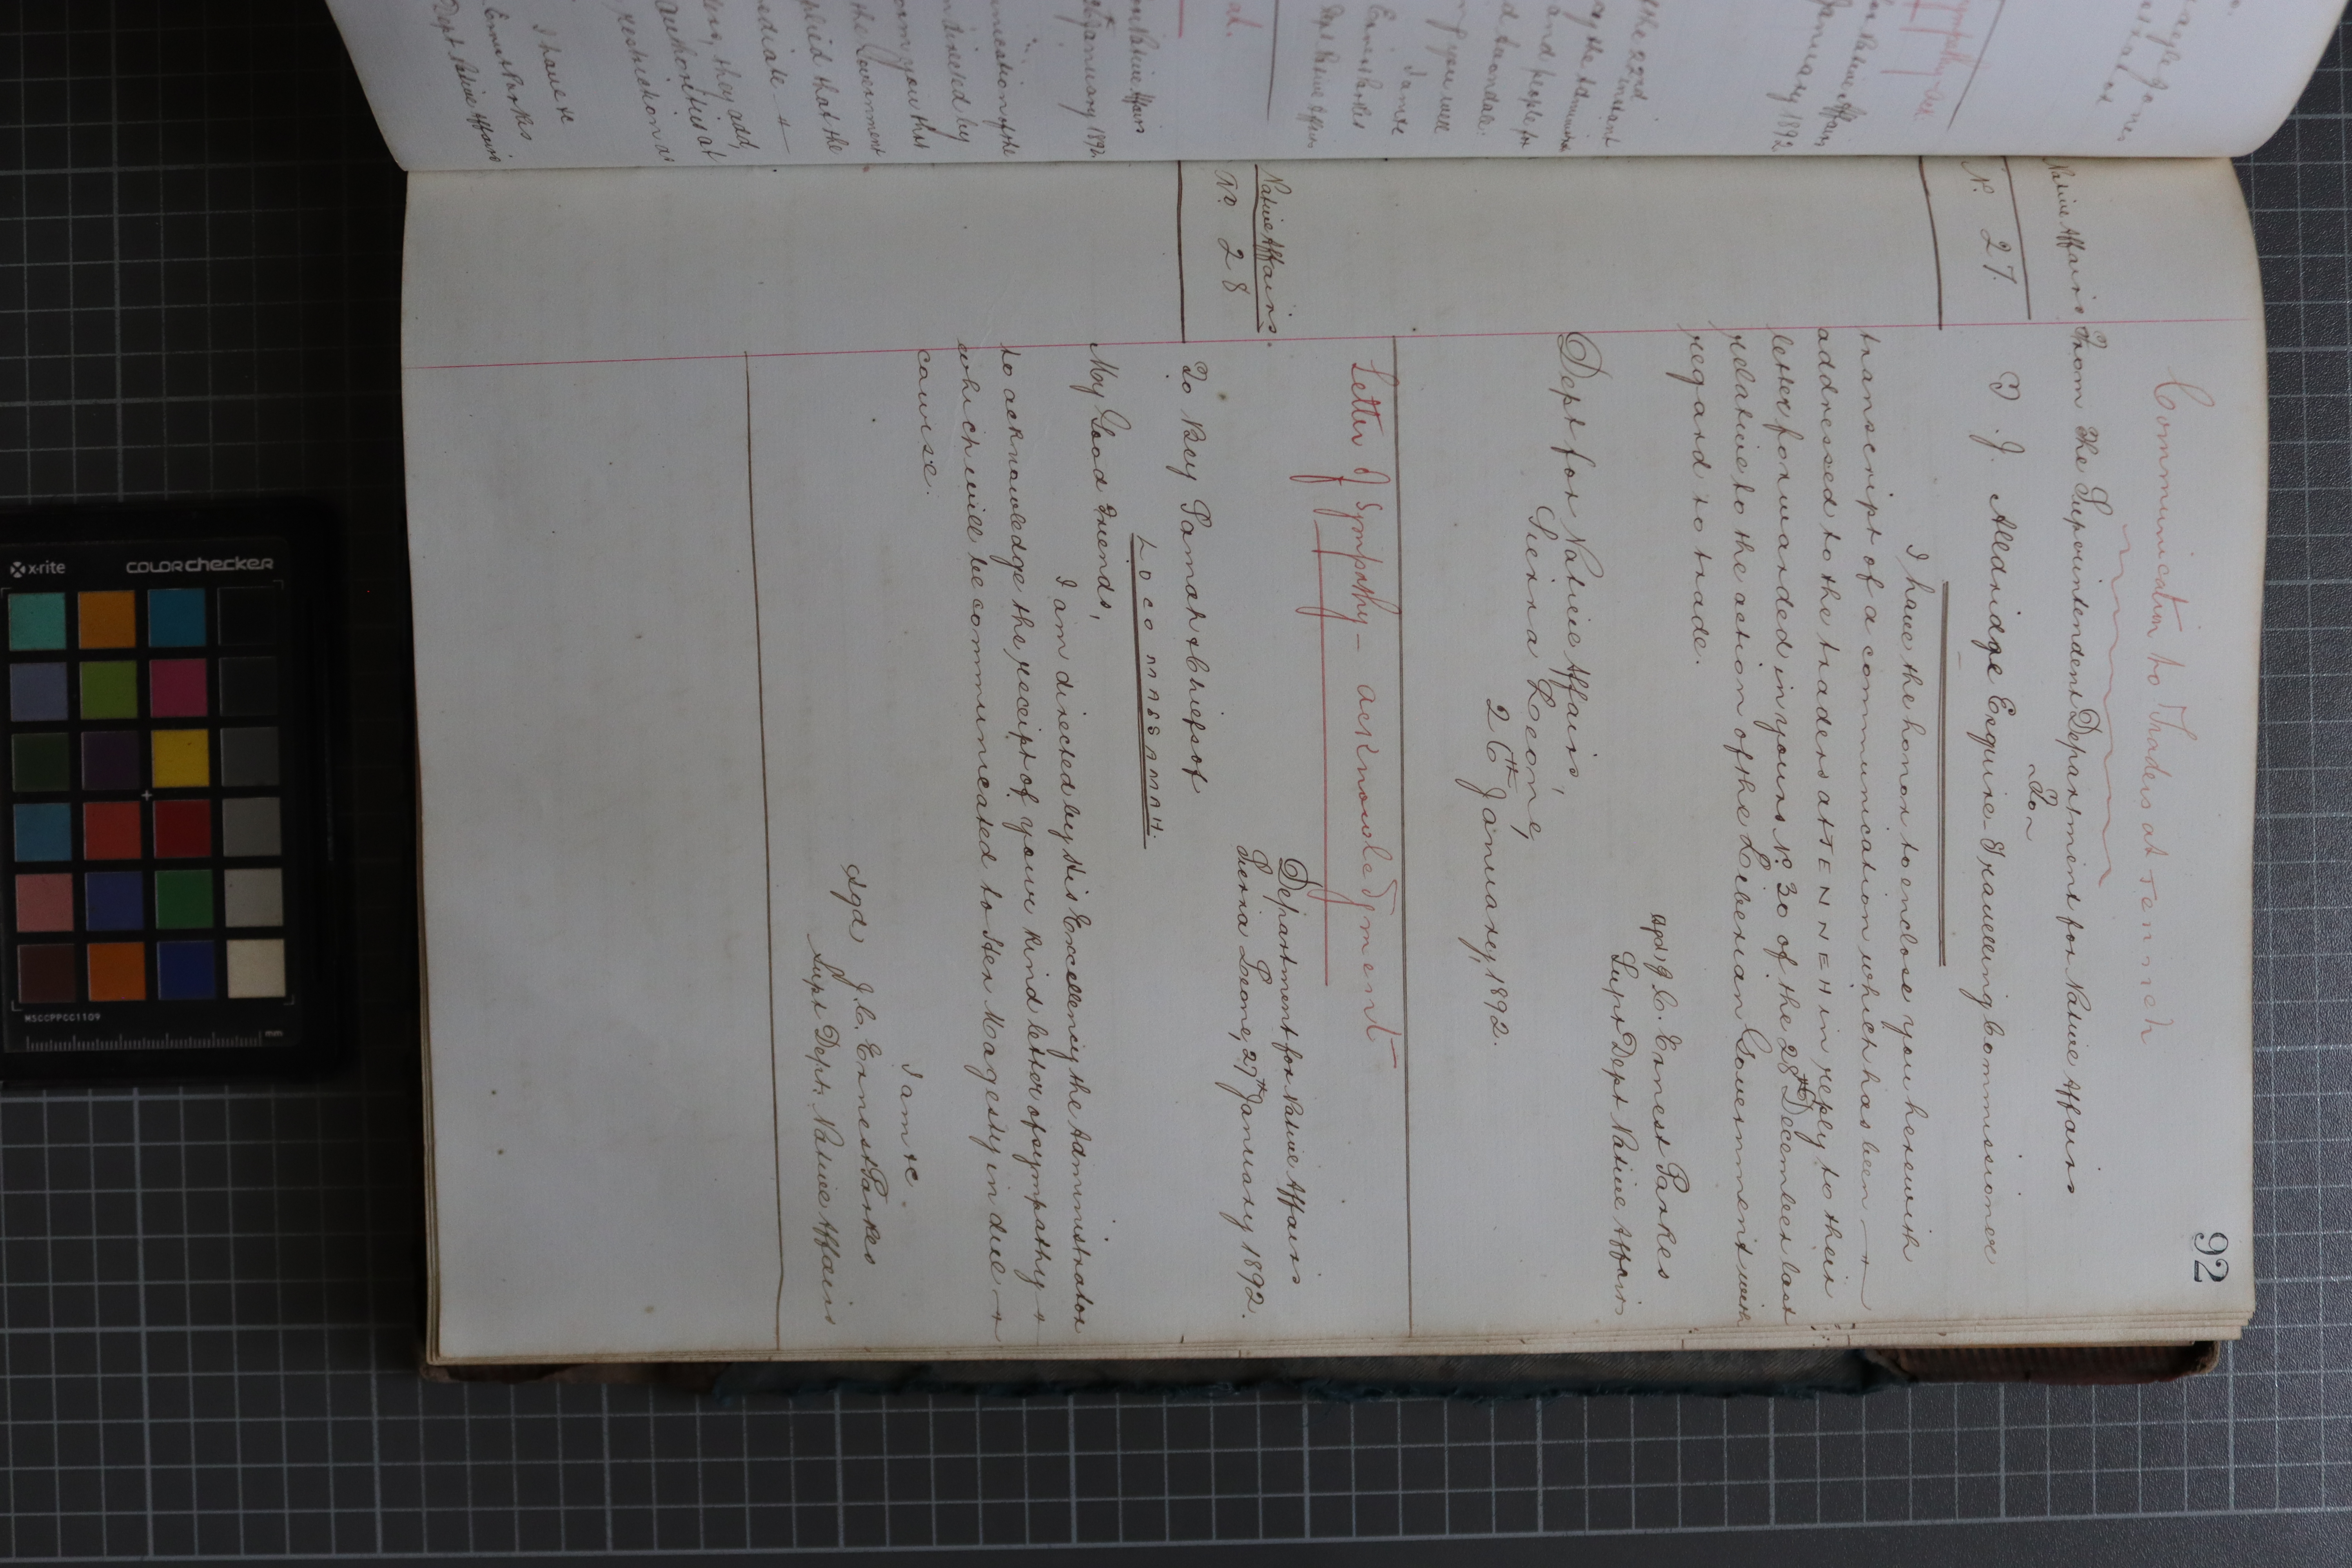 92
Communication to Traders at Tenneh
Native Affairs
From The Superintendent Department for Native Affairs
To
No. 27.
T. J. Alldridge Esquire - Travelling Commissioner
I have the honor to enclose you herewith
transcript of a communication which has been
addressed to the traders at TENNEH in reply to their
letter forwarded in yours No. 30 of the 28th December last
relative to the action of the Liberian Government with
regard to trade.
sgd: J. C. Ernest Parkes
Supt Dept Native Affairs
Dept for Native Affairs,
Sierra Leone,
26th January, 1892.
Letter of Sympathy - acknowledgment -
Native Affairs.
No. 28
Department for Native Affairs
Sierra Leone, 27th January 1892.
To Bey Samah & Chiefs of
My Good Friends,
I am directed by His Excellency the Administrator
to acknowledge the receipt of your kind letter of sympathy &
which will be communicated to Her Magesty in due
course.
I am &c.
sgd J. C. Ernest Parkes
Supt Dept. Native Affairs
Native Affairs
January 1892
the 22nd instant
and people for
I am &c
Ernest Parkes
Dept Native Affairs
Native Affairs
January 1892
directed by
the Government
that the
they add,
Authorities at
restriction as
I have &c
Ernest Parkes
Dept Native Affairs
x-rite
colorchecker
MSCCPPCC1109
mm